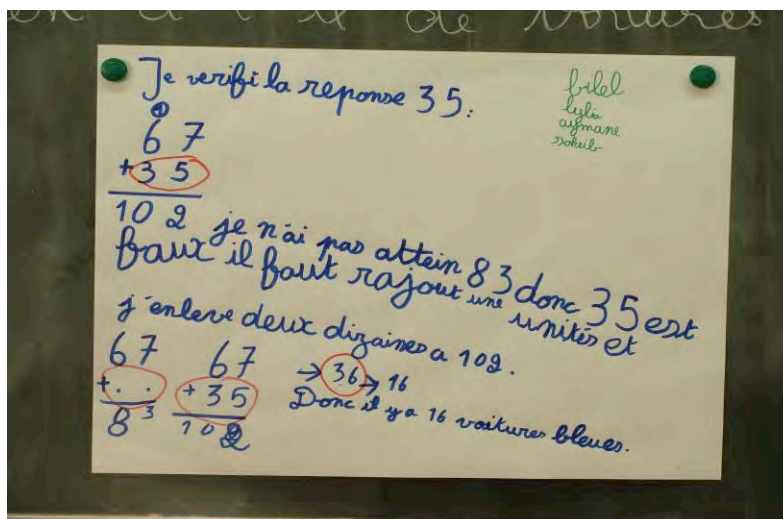 de voitures
Je verifi la reponse 35:
bilel
lylia
aymane
soheib
1
67
+35
102
je n'ai pas attein 83 donc 35 est
faux il faut rajout une unités et
j'enleve deux dizaines a 102.
67
+..
83
67
+35
102
→ 36 → 16
Donc il y a 16 voitures bleues.